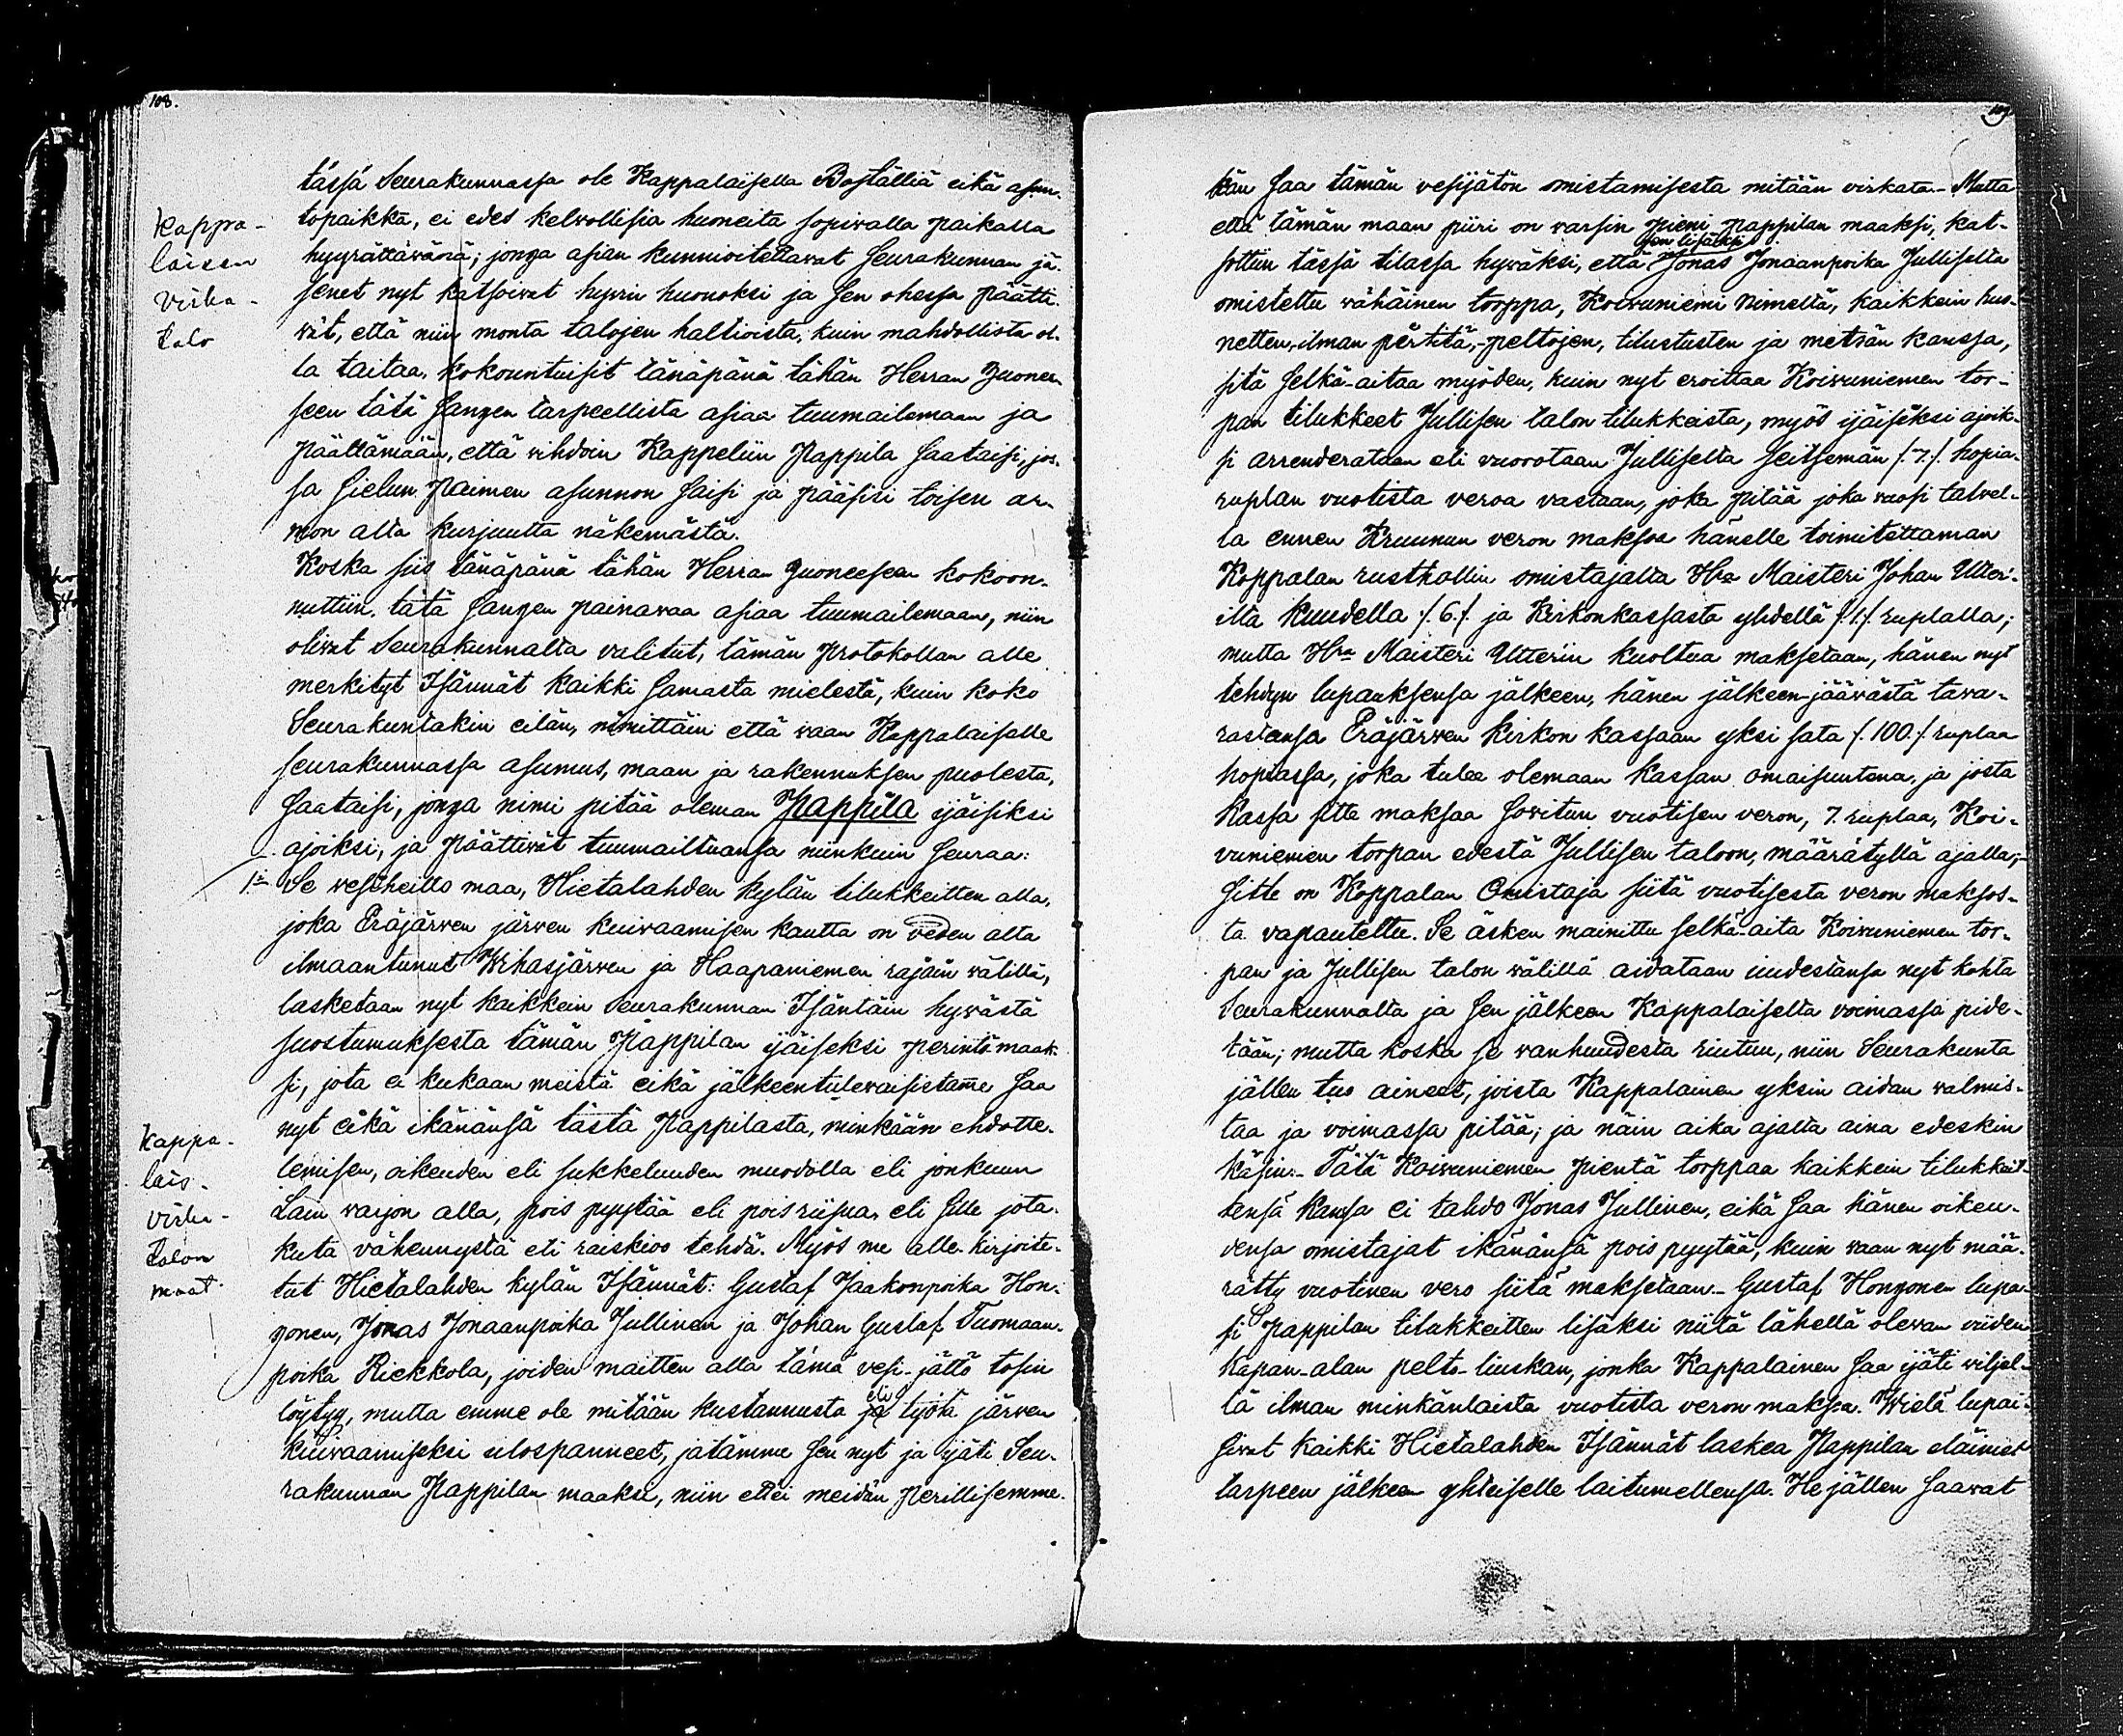 108.
tässä Seurakunnassa ole Kappalaisella Boställiä eikä asun-
topaikka, ei edes kelwollisia huoneita sopiwalla paikalla
hyyrättäwänä; jonga asian kunnioitettawat Seurakunnan jä-
senet nyt katsoiwat hywin huonoksi ja sen ohessa päätti-
wät, että niin monta talojen haltioista, kuin mahdollista ol-
la taitaa, kokountuisit tänäpänä tähän Herran Huonee-
seen tätä sangen tarpeellista asiaa tuumailemaan ja
päättämään, että wihdoin Kappeliin Pappila saataisi, jos-
sa Sielun Paimen asunnon saisi ja pääsisi toisen ar-
mon alta kurjuutta näkemästä.
Koska siis tänäpänä tähän Herran Huoneeseen kokoon-
nuttiin, tätä sangen painawaa asiaa tuumailemaan, niin
oliwat Seurakunnalta valitut, tämän Protokollan alle
merkityt Isännät kaikki samasta mielestä, kuin koko
Seurakuntakin eilän, nimittäin että waan Kappalaiselle
seurakunnassa asumus, maan ja rakennuksen puolesta,
saataisi, jonga nimi pitää oleman Pappila ijäisiksi
ajoiksi, ja päättiwät tuumailtuansa niinkuin seuraa:
1o Se wesiheitto maa, Hietalahden kylän tilukkeitten alla,
joka Eräjärwen järwen kuiwaamisen kautta on veden alta
ilmaantunut Wihasjärwen ja Haapaniemen rajain wälillä,
lasketaan nyt kaikkein Seurakunnan Isäntäin hywästä
suostumuksesta tämän Pappilan ijäiseksi perintö maak-
si, jota ei kukaan meistä eikä jälkeentulewaisistamme saa
nyt eikä ikänänsä tästä Pappilasta, minkään ehdotte-
lemisen, oikeuden eli sukkeluuden muodolla eli jonkuun
Lain warjon alla, pois pyytää eli pois riisua, eli sille jota-
kuta vähennystä eli raiskioo tehdä. Myös me alle kirjoite-
tut Hietalahden kylän Isännät: Gustaf Jaakonpoika Hon-
gonen, Jonas Jonaanpoika Jullinen ja Johan Gustaf Tuomaan-
poika Riekkola, joiden maitten alla tämä vesi-jättö tosin
löytyy, mutta emme ole mitään kustannusta ja eli työtä järwen
kuiwaamiseksi ulospanneet, jätämme sen nyt ja ijäti Seu-
rakunnan Pappilan maaksi, niin ettei meidän Perillisemme-
kappa-
laisen
virka-
talo
kappa-
lais-
virka-
talon
maat.
109
kän saa tämän vesijätön omistamisesta mitään virkata.- Mutta
että tämän maan piiri on warsin pieni pappilan maaksi, kat-
sen lisäksi
sottiin tässä tilassa hywäksi, että Jonas Jonaanpoika Julliselta
omistettu wähäinen torppa, Koiwuniemi nimeltä, kaikkein huo-
netten,-ilman pörtitä,-peltojen, tilustusten ja metsän kanssa,
sitä selkä-aitaa myöden, kuin nyt eroittaa Koiwuniemen tor-
pan tilukkeet Jullisen talon tilukkeista, myös ijäiseksi ajoik-
si arrenderataan eli vuorotaan Julliselta seitsemän /.7./ hopia-
ruplan vuotista veroa vastaan, joka pitää joka vuosi talwel-
la ennen Kruunun veron maksoa hänelle toimitettaman
Koppalan rusthollin omistajalta Hra Maisteri Johan Utter'-
iltä kuudella /.6./ ja Kirkonkassasta yhdellä /.1./ ruplalla;
mutta Hra Maisteri Utter'in kuoltua maksetaan, hänen nyt
tehdyn lupauksensa jälkeen, hänen jälkeen-jääwästä tawa-
rastansa Eräjärwen kirkon kassaan yksi sata /.100./ ruplaa
hopiassa, joka tulee olemaan kassan omaisuutena, ja josta
kassa sitte maksaa sowitun vuotisen veron, 7. ruplaa, Koi-
vuniemen torpan edestä Jullisen taloon, määrätyllä ajalla;-
sitte on Koppalan Omistaja siitä vuotisesta veron maksos-
ta vapautettu. Se äsken mainittu selkä-aita Koiwuniemen tor-
pan ja Jullisen talon wälillä aidataan uudestansa nyt kohta
Seurakunnalta ja sen jälkeen Kappalaiselta voimassa pide-
tään; mutta koska se wanhuudesta riutuu, niin Seurakunta
jällen tuo aineet, joista Kappalainen yksin aidan walmis-
taa ja voimassa pitää; ja näin aika ajalta aina edeskin
käsin.- Tätä Koiwuniemen pientä torppaa kaikkein tilukkeit-
tensa kansa ei tahdo Jonas Jullinen, eikä saa hänen oikeu-
densa omistajat ikänänsä pois pyytää, kuin waan nyt mää-
rätty vuotinen vero siitä maksetaan.- Gustaf Hongonen lupa-
si Pappilan tilukkeitten lisäksi niitä lähellä olewan viiden
kapan-alan pelto-liuskan, jonka Kappalainen saa ijäti wiljel-
lä ilman minkänlaista vuotista veron maksoa. Wielä lupai-
siwat kaikki Hietalahden Isännät laskea Pappilan eläimet
tarpeen jälkeen yhteiselle laitumellensa. He jällen saawat